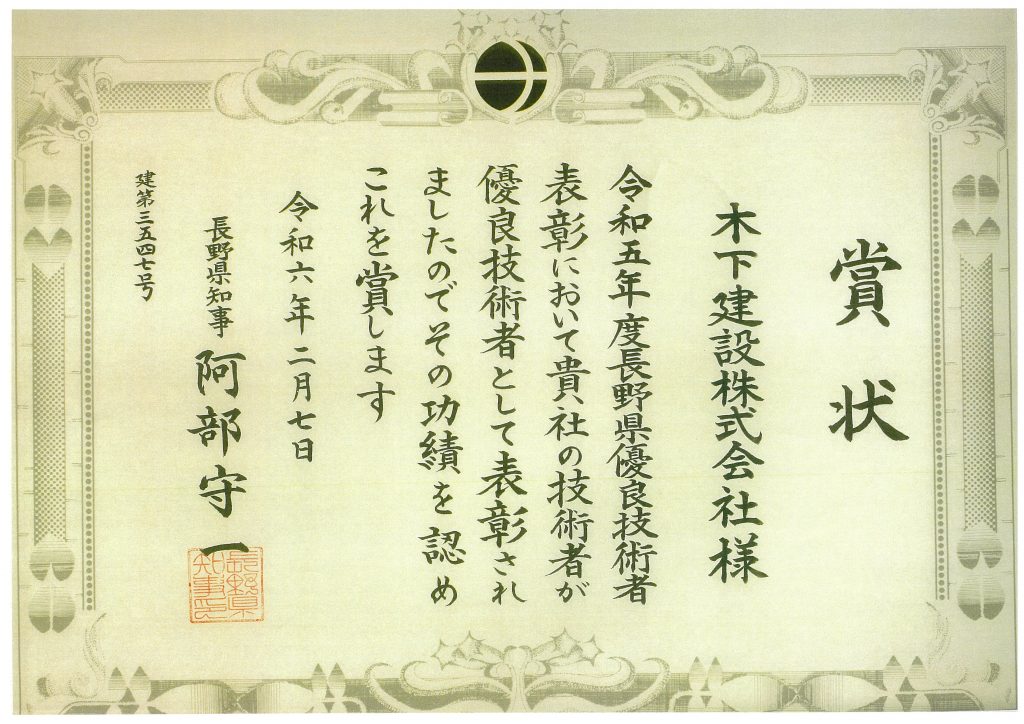 賞状
木下建設株式会社様
令和五年度長野県優良技術者
表彰において貴社の技術者が
優良技術者として表彰され
ましたのでその功績を認め
これを賞します
令和六年二月七日
長野県知事 阿部守一
長野県知事之印
建第三五四七号